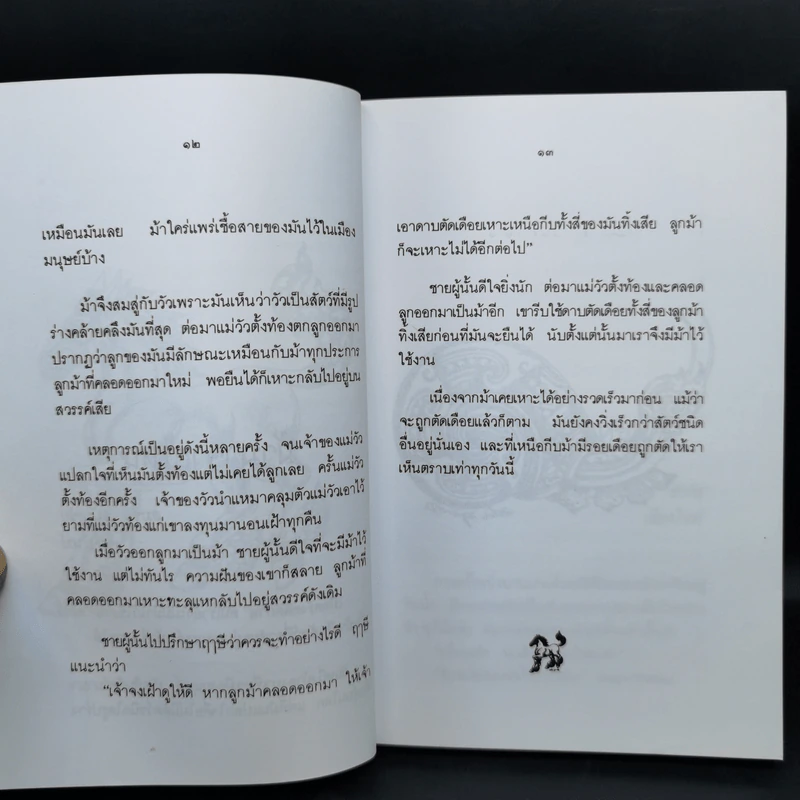 ๑๒
เหมือนมันเลย ม้าใคร่แพร่เชื้อสายของมันไว้ในเมือง
มนุษย์บ้าง
ม้าจึงสมสู่กับวัวเพราะมันเห็นว่าวัวเป็นสัตว์ที่มีรูป
ร่างคล้ายคลึงมันที่สุด ต่อมาแม่วัวตั้งท้องตกลูกออกมา
ปรากฏว่าลูกของมันมีลักษณะเหมือนกับม้าทุกประการ
ลูกม้าที่คลอดออกมาใหม่ พอยืนได้ก็เหาะกลับไปอยู่บน
สวรรค์เสีย
เหตุการณ์เป็นอยู่ดังนี้หลายครั้ง จนเจ้าของแม่วัว
แปลกใจที่เห็นมันตั้งท้องแต่ไม่เคยได้ลูกเลย ครั้นแม่วัว
ตั้งท้องอีกครั้ง เจ้าของวัวนำแหมาคลุมตัวแม่วัวเอาไว้
ยามที่แม่วัวท้องแก่เขาลงทุนมานอนเฝ้าทุกคืน
เมื่อวัวออกลูกมาเป็นม้า ชายผู้นั้นดีใจที่จะมีม้าไว้
ใช้งาน แต่ไม่ทันไร ความฝันของเขาก็สลาย ลูกม้าที่
คลอดออกมาเหาะทะลุแหกลับไปอยู่สวรรค์ดังเดิม
ชายผู้นั้นไปปรึกษาฤๅษีว่าควรจะทำอย่างไรดี ฤๅษี
แนะนำว่า
“เจ้าจงเฝ้าดูให้ดี หากลูกม้าคลอดออกมา ให้เจ้า
๑๓
เอาดาบตัดเดือยเหาะเหนือกีบทั้งสี่ของมันทิ้งเสีย ลูกม้า
ก็จะเหาะไม่ได้อีกต่อไป”
ชายผู้นั้นดีใจยิ่งนัก ต่อมาแม่วัวตั้งท้องและคลอด
ลูกออกมาเป็นม้าอีก เขารีบใช้ดาบตัดเดือยทั้งสี่ของลูกม้า
ทิ้งเสียก่อนที่มันจะยืนได้ นับตั้งแต่นั้นมาเราจึงมีม้าไว้
ใช้งาน
เนื่องจากม้าเคยเหาะได้อย่างรวดเร็วมาก่อน แม้ว่า
จะถูกตัดเดือยแล้วก็ตาม มันยังคงวิ่งเร็วกว่าสัตว์ชนิด
อื่นอยู่นั่นเอง และที่เหนือกีบม้ามีรอยเดือยถูกตัดให้เรา
เห็นตราบเท่าทุกวันนี้